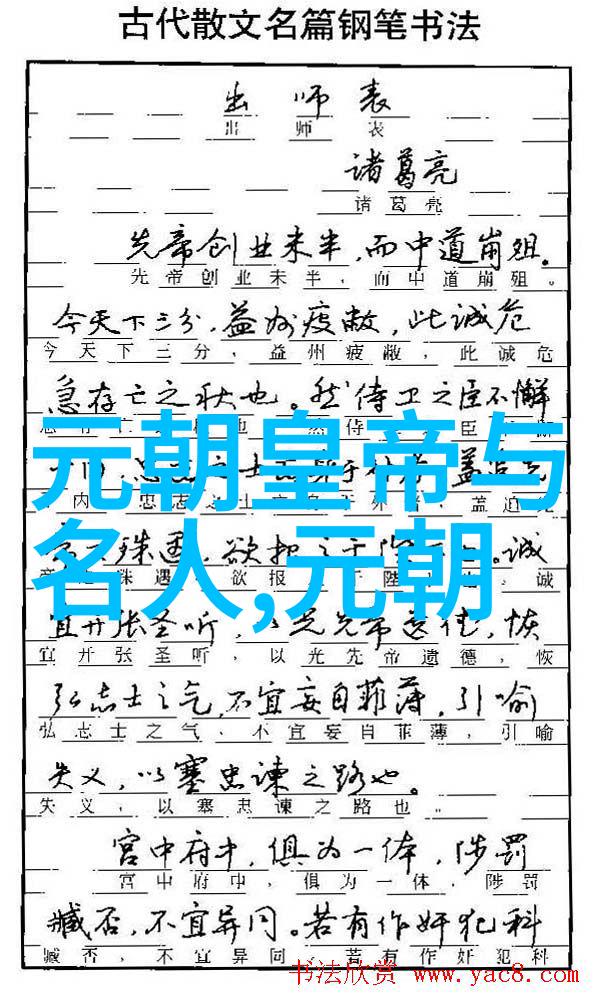 古代散文名篇钢笔书法
出师表
出师表
诸葛亮
诸葛亮
先帝创业未半,而中道崩殂。
先帝创业未半,而中道崩殂。
今天下三分,益州疲敝,此诚危
今天下三分,益州疲敝,此诚危
急存亡之秋也。然侍卫之臣不懈
元朝皇帝与
名人,元朝
盖追先
殊遇,欲报之于陛下也。诚
殊遇,欲报
诚
宜开张圣听,以光先帝遗德,恢
宜开张圣听,以光先帝遗德,恢
弘志士之气,不宜妄自菲薄,引喻
弘志士之气,不宜妄自菲薄,引喻
失义,以塞忠谏之路也。
失义,以塞忠谏之路也。
宫中府中,俱为一体,陟罚
宫中府中,俱为一体,陟罚
臧否,不宜异同。若有作奸犯科
臧否,不宜异同。若有作奸犯科
书法欣赏 www.yac8.com